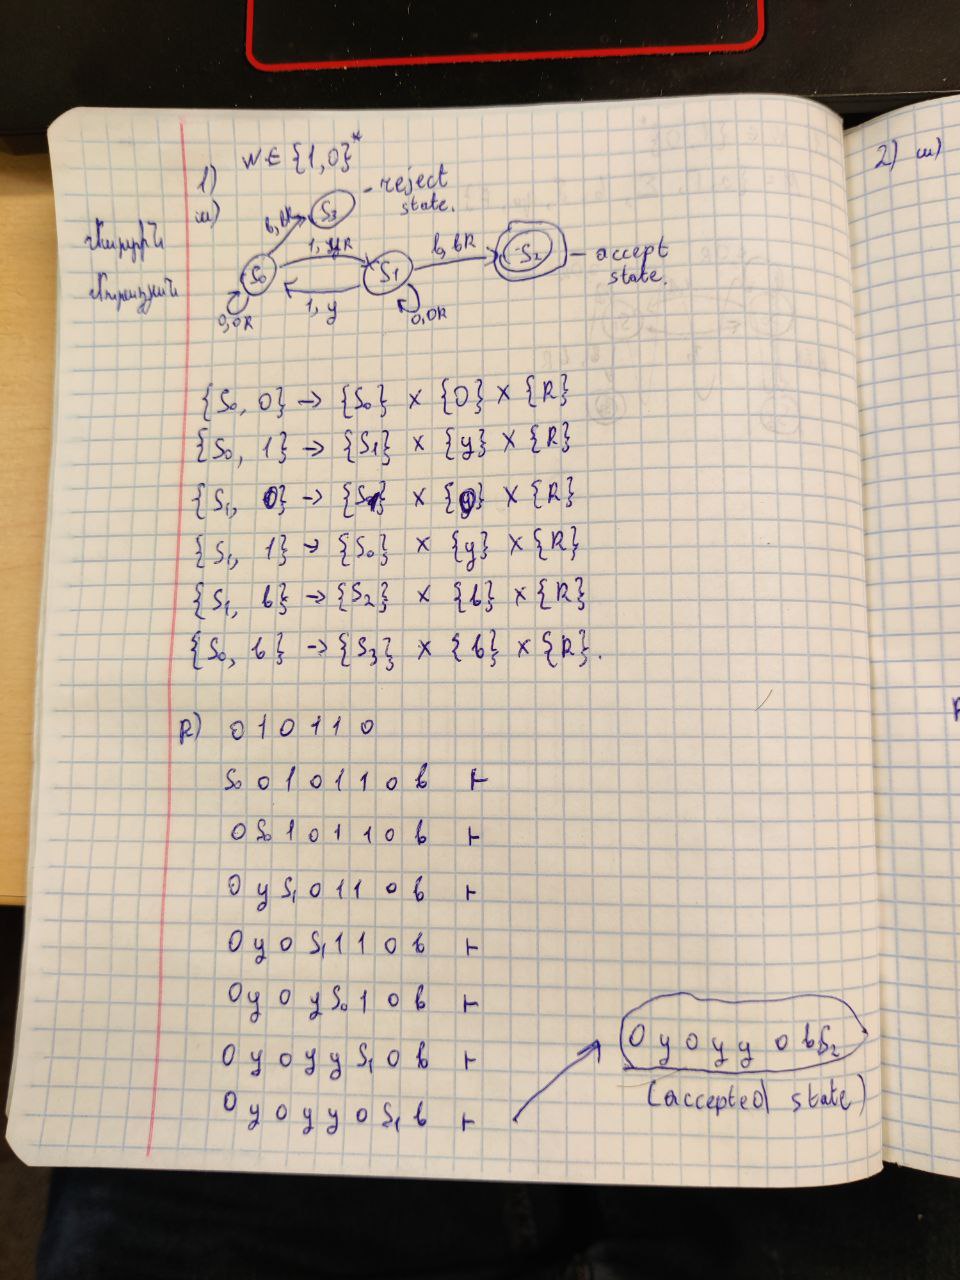 1) w ∈ {1,0}*
ա)
S3 - reject
state.
b, bR
1, yR
b, bR
S0
S1
S2 - accept
state.
1, y
0,0R
0,0R
{S0, 0} → {S0} × {0} × {R}
{S0, 1} → {S1} × {y} × {R}
{S1, 0} → {S1} × {0} × {R}
{S1, 1} → {S0} × {y} × {R}
{S1, b} → {S2} × {b} × {R}
{S0, b} → {S3} × {b} × {R}.
բ) 0 1 0 1 1 0
S0 0 1 0 1 1 0 b ⊢
0 S0 1 0 1 1 0 b ⊢
0 y S1 0 1 1 0 b ⊢
0 y 0 S1 1 1 0 b ⊢
0 y 0 y S0 1 0 b ⊢
0 y 0 y y S1 0 b ⊢
0 y 0 y y 0 S1 b ⊢
0 y 0 y y 0 b S2
(accepted state)
2) ա)